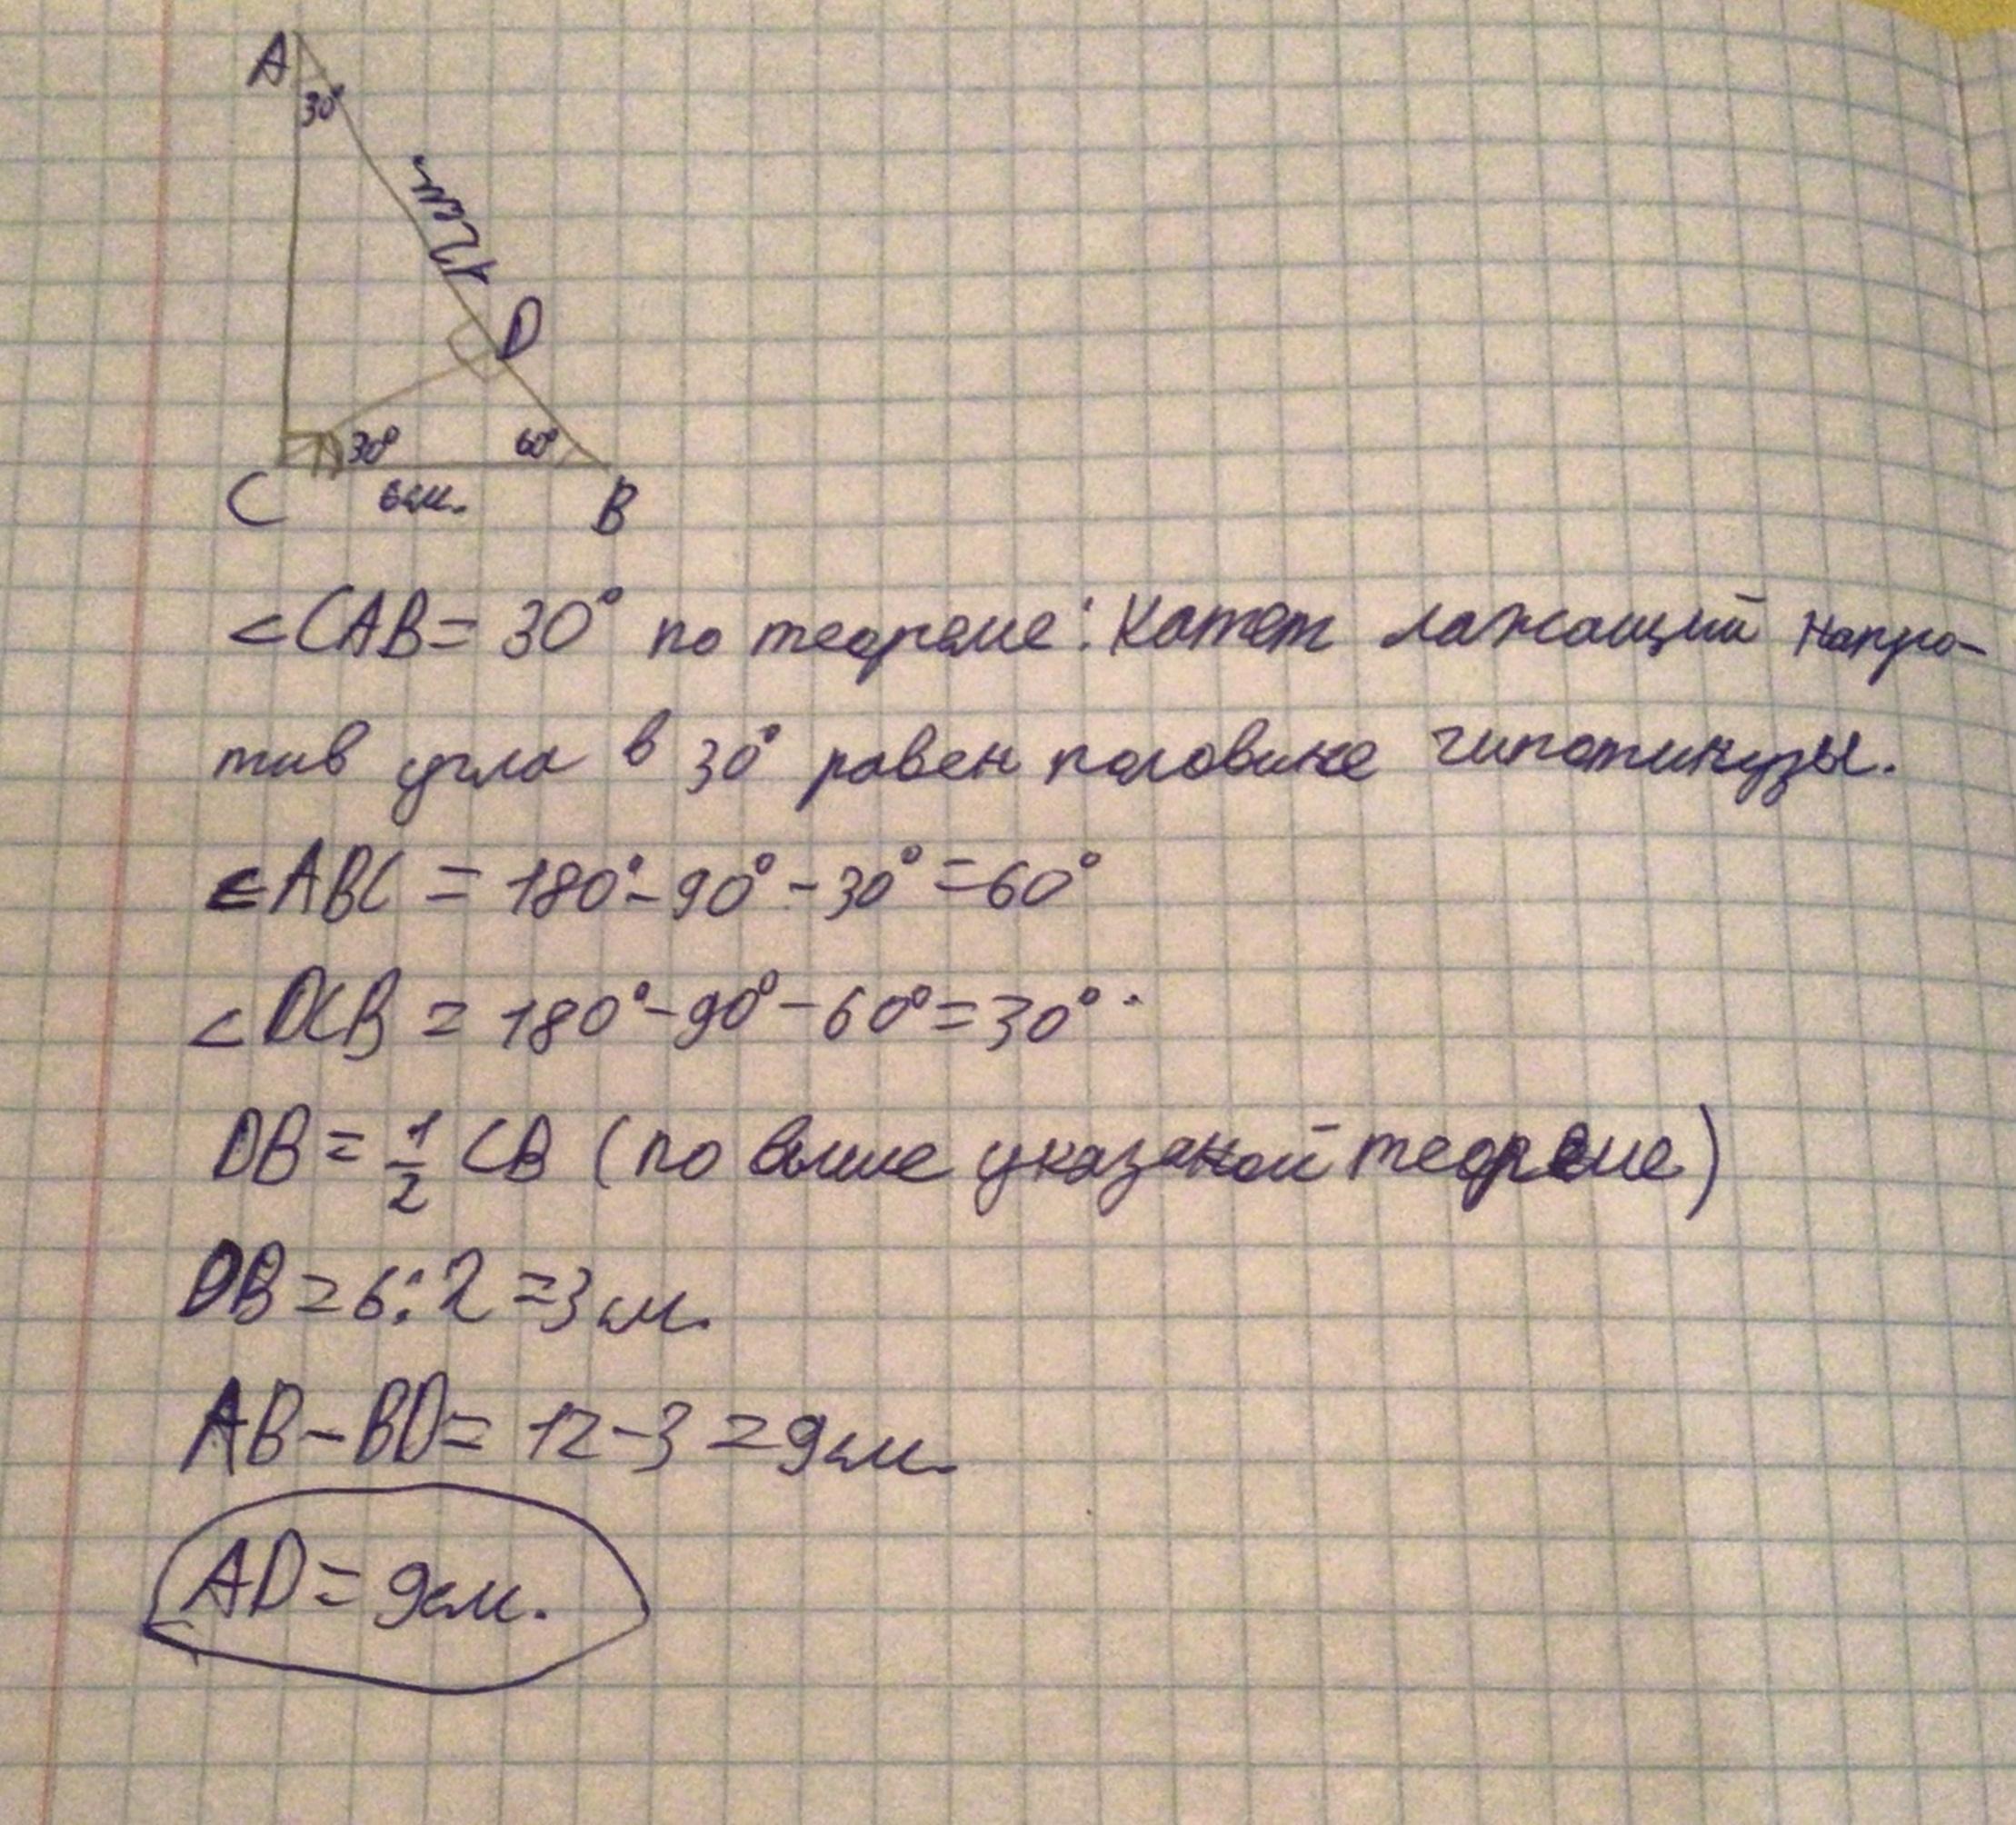 A
30°
12см
D
30° 60°
C 6см. B
<CAB = 30° по теореме: Катет лажащий напро-
тив угла в 30° равен половине гипотинузы.
<ABC = 180°-90°-30°=60°
<DCB = 180°-90°-60°=30°.
DB = 1/2 CB (по выше указаной теореме)
DB = 6:2 = 3 см.
AB-BD = 12-3 = 9 см.
AD = 9см.